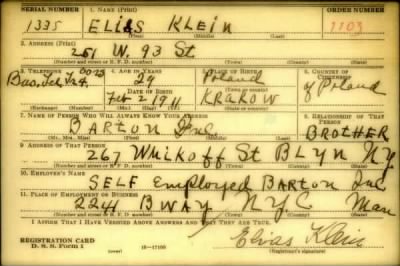 SERIAL NUMBER 1. NAME (Print) ORDER NUMBER
1335 ELIAS KLEIN 1103
(First) (Middle) (Last)
2. ADDRESS (Print)
261 W. 93 St
(Number and street or R. F. D. number) (Town) (County) (State)
3. TELEPHONE 4. AGE IN YEARS 5. PLACE OF BIRTH 6. COUNTRY OF CITIZENSHIP
29 Poland of Poland
DATE OF BIRTH (Town or county)
Feb 2 1911 KRAKOW
(Exchange) (Number) (Mo.) (Day) (Yr.) (State or country)
7. NAME OF PERSON WHO WILL ALWAYS KNOW YOUR ADDRESS 8. RELATIONSHIP OF THAT PERSON
BARTON Inc. BROTHER
(Mr., Mrs., Miss) (First) (Middle) (Last)
9. ADDRESS OF THAT PERSON
267 St BLYN NY
(Number and street or R. F. D. number) (Town) (County) (State)
10. EMPLOYER'S NAME
SELF Employed BARTON Inc
11. PLACE OF EMPLOYMENT OR BUSINESS
2241 BWAY NYC Man
(Number and street or R. F. D. number) (Town) (County) (State)
I AFFIRM THAT I HAVE VERIFIED ABOVE ANSWERS AND THAT THEY ARE TRUE.
REGISTRATION CARD
D. S. S. Form 1 16—17105 Elias Klein
(Registrant's signature)